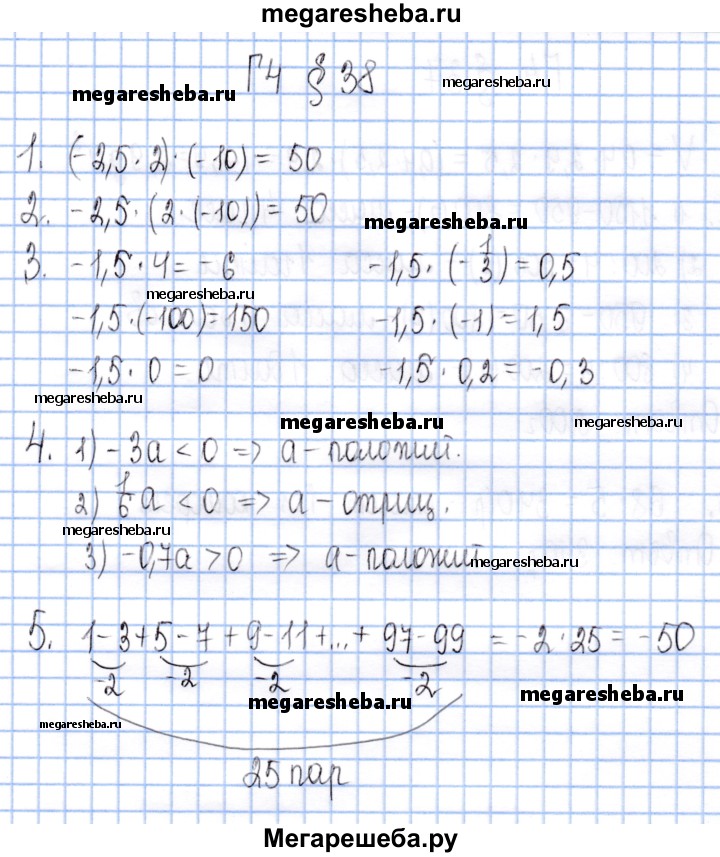 megaresheba.ru
Г4 § 38
megaresheba.ru megaresheba.ru
1. (-2,5·2)·(-10) = 50
2. -2,5·(2·(-10)) = 50
megaresheba.ru
3. -1,5·4 = -6 -1,5·(-1/3) = 0,5
megaresheba.ru
-1,5·(-100) = 150 -1,5·(-1) = 1,5
-1,5·0 = 0 -1,5·0,2 = -0,3
megaresheba.ru
megaresheba.ru megaresheba.ru
4. 1) -3a < 0 => a - положит.
2) 1/6 a < 0 => a - отриц.
megaresheba.ru
3) -0,7a > 0 => a - положит
megaresheba.ru
5. 1-3+5-7+9-11+...+97-99 = -2·25 = -50
-2 -2 -2 -2
megaresheba.ru megaresheba.ru
megaresheba.ru
25 пар
Мегарешеба.ру